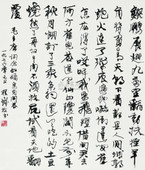 鲲鹏展翅九万里翻动扶摇
羊角背负青天朝下看都是人间城郭
炮火连天弹痕遍地吓倒蓬间雀
怎么得了哎呀我要飞跃借问君去
何方雀儿答道有仙山琼阁不见前年
秋月朗订了三家条约还有吃的土豆
烧熟了再加牛肉不须放屁试看天地翻
覆
毛主席词念奴娇鸟儿问答
一九七六年